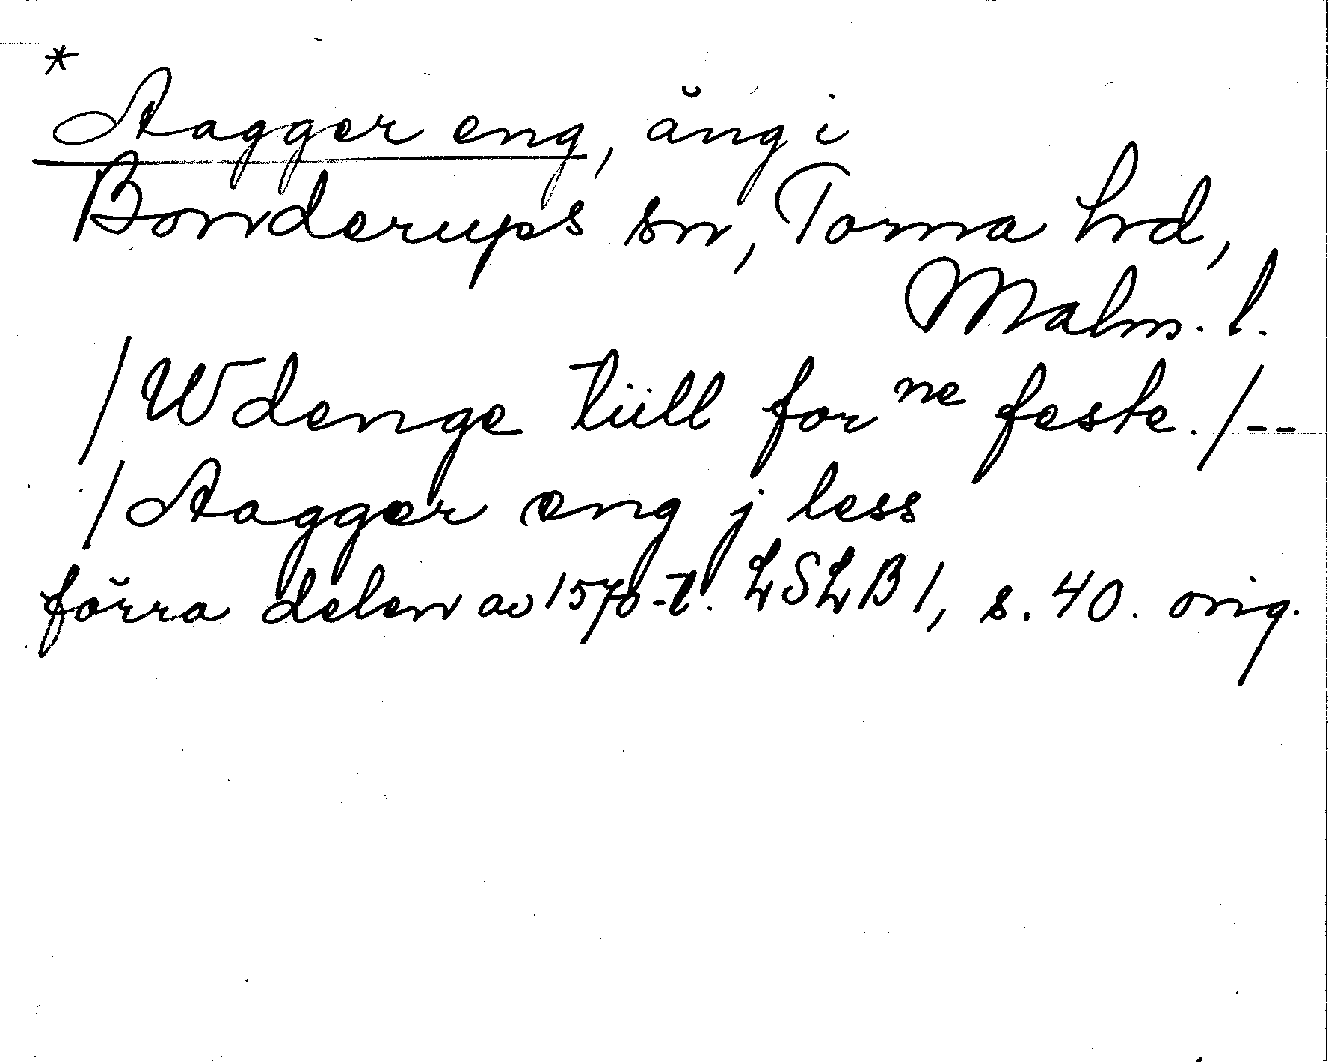 *
Aagger eng, äng i
Bonderups sn, Torna hd,
Malm. l.
/Wdenge tiill for ne feste./--
/Aagger eng j less
förra delen av 1570-t. LSLB 1, s. 40. orig.